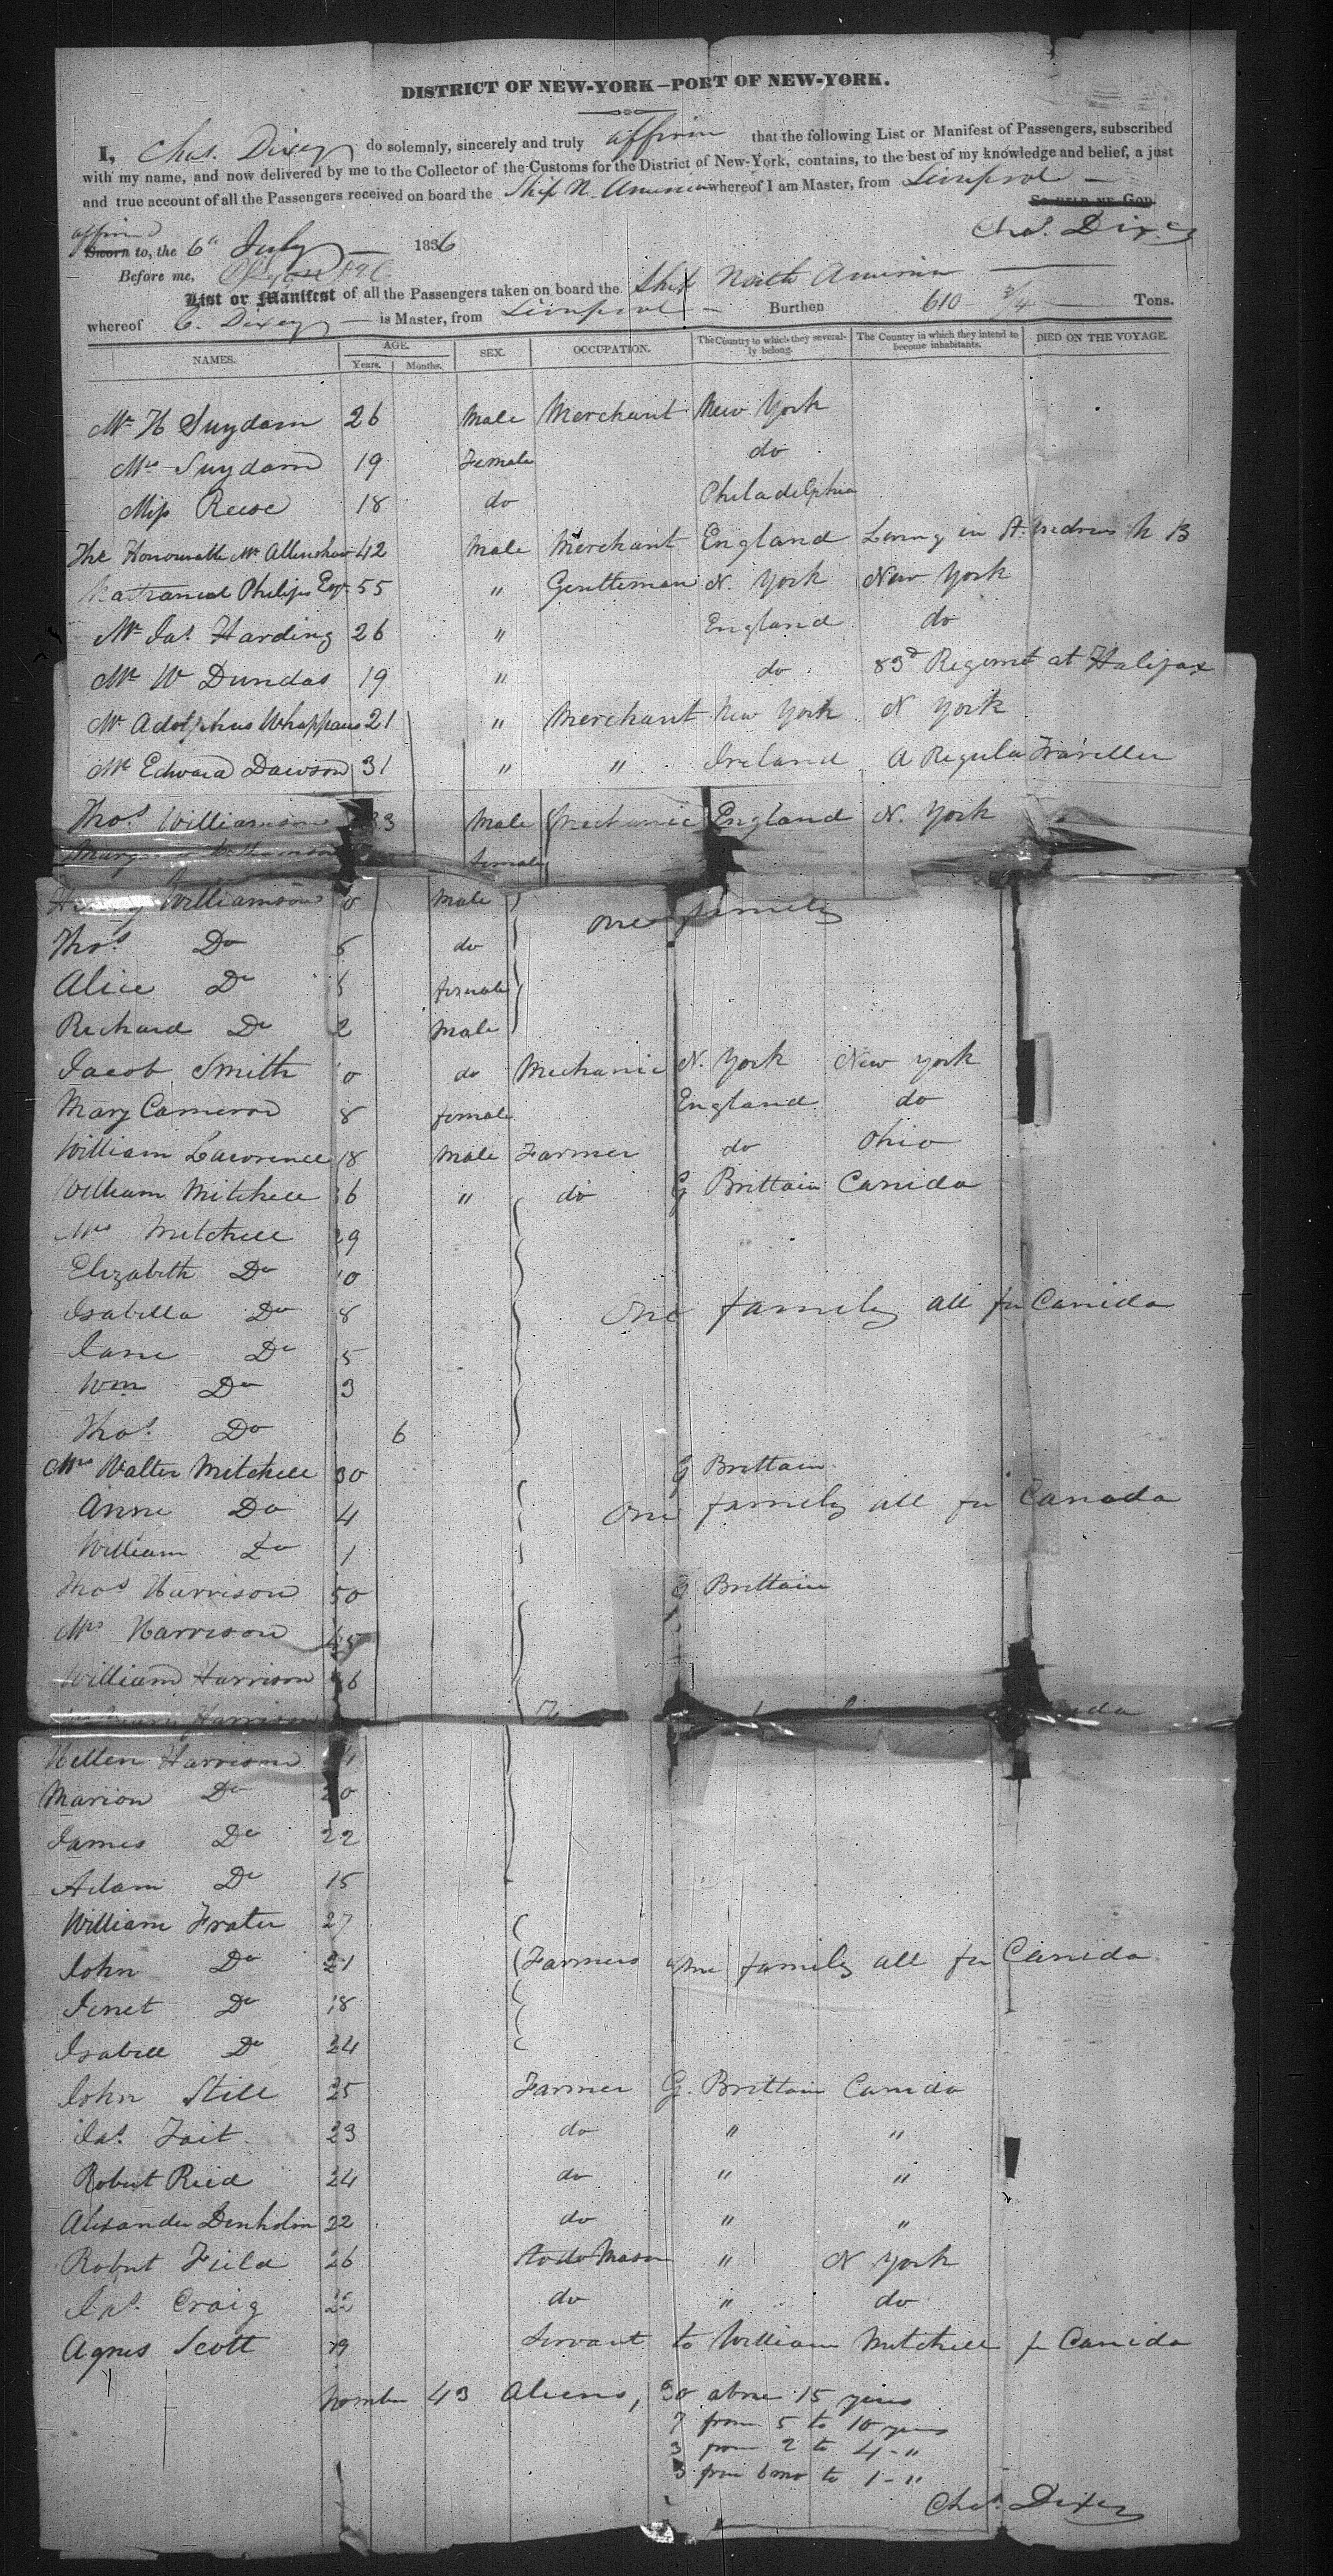 DISTRICT OF NEW-YORK—PORT OF NEW-YORK.
I, Chas. Dixey do solemnly, sincerely and truly affirm that the following List or Manifest of Passengers, subscribed
with my name, and now delivered by me to the Collector of the Customs for the District of New-York, contains, to the best of my knowledge and belief, a just
and true account of all the Passengers received on board the Ship N. America whereof I am Master, from Liverpool
So HELP ME GOD.
affirmed Chas. Dixey
Sworn to, the 6th July 1836
Before me,
List or Manifest of all the Passengers taken on board the Ship North America
whereof C. Dixey is Master, from Liverpool Burthen 610 3/4 Tons.
NAMES. AGE. Years. Months. SEX. OCCUPATION. The Country to which they severally belong. The Country in which they intend to become inhabitants. DIED ON THE VOYAGE.
Mr H Suydam 26 Male Merchant New York
Mrs Suydam 19 Female do
Miss Reese 18 do Philadelphia
The Honourable Mr Allinshaw 42 Male Merchant England Living in St. Andrews N B
Nathanial Philips Esqr 55 " Gentleman N. York New York
Mr Jas. Harding 26 " England do
Mr W Dundas 19 " do 83d Regiment at Halifax
Mr Adolphus Whappaus 21 " Merchant New York N York
Mr Edward Dawson 31 " " Ireland A Regular Traveller
Thos Williamson 33 Male Mechanic England N. York
female
Williamson Male One family
Thos Do do
Alice Do female
Richard Do 2 Male
Jacob Smith do Mechanic N. York New york
Mary Cameron female England do
William Lawrence 18 Male Farmer do Ohio
William Mitchell 36 " do G Brittain Canida
Mrs Mitchell 29
Elizabeth Do 10
Isabella Do 8 One family all for Canida
Jane Do 5
Wm Do 3
Thos. Do 6
Mrs Walter Mitchell 30 G Brittain
Anne Do 4 One family all for Canada
William Do 1
Thos Harrison 50 G Brittain
Mrs Harrison 45
William Harrison
Harrison
Hellen Harrison
Marion Do 20
James Do 22
Adam Do 15
William Frater 27
John Do 21 Farmers One family all for Canida
Jenet Do 18
Isabell Do 24
John Still 25 Farmer G. Brittain Canida
Jas. Tait 23 do " "
Robert Reid 24 do " "
Alexander Denholm 22 do " "
Robert Field 26 Mason " N York
Jas. Craig 22 do " do
Agnes Scott 19 Servant to William Mitchell for Canida
Number 43 Aliens, 30 above 15 years
7 from 5 to 10 years
3 from 2 to 4 - "
3 from 6 mo to 1 - "
Chas. Dixey